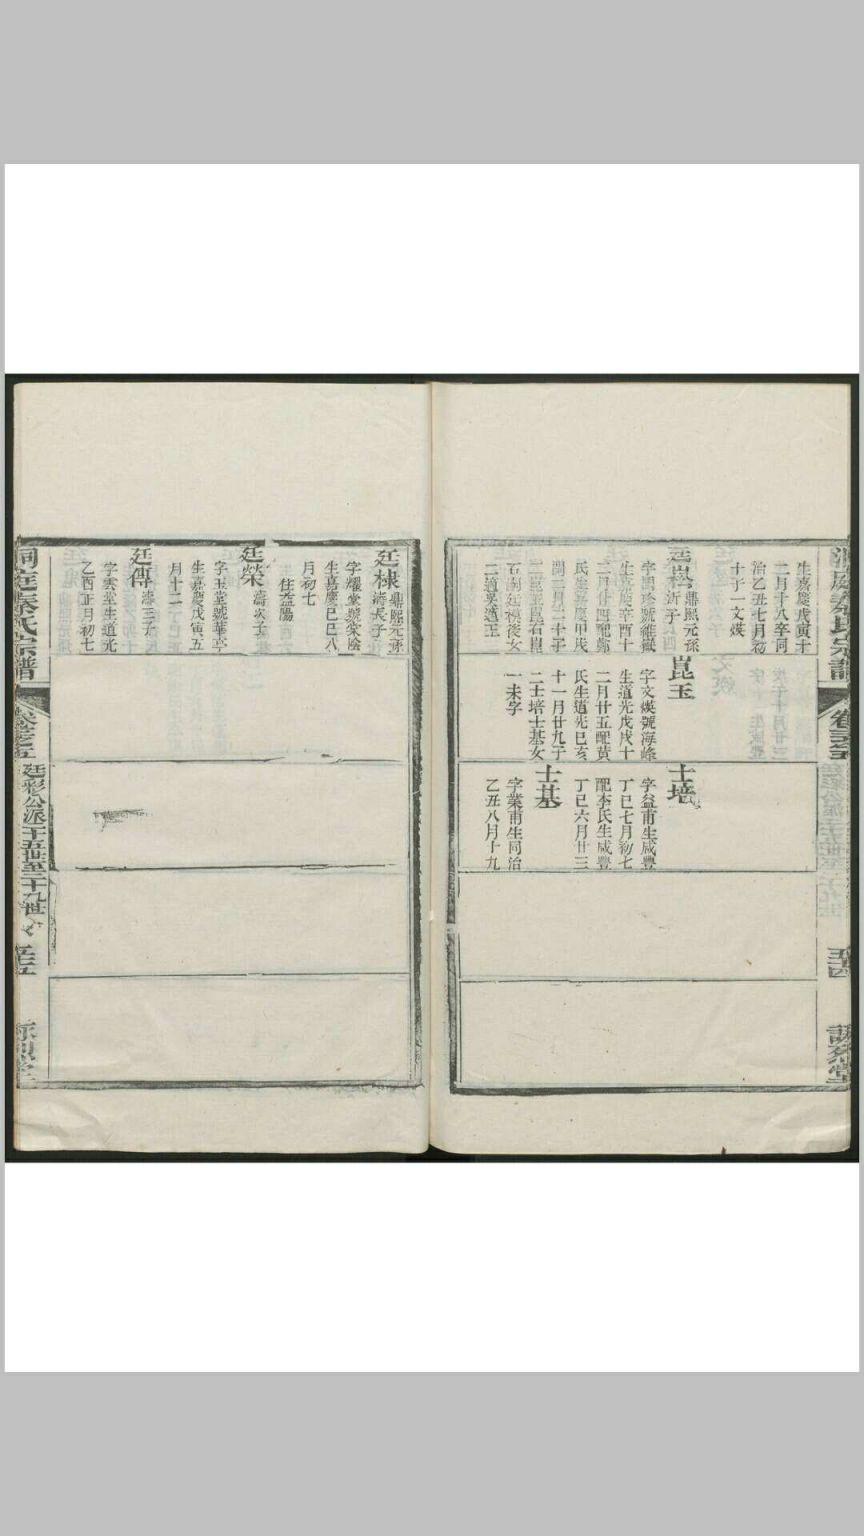 洞庭秦氏宗譜
五十四
生嘉慶戊寅十
二月十八卒同
治乙丑七月初
十子一文煐
廷崑
鼎熙元孫
沂子
二月廿四配鄭
氏生嘉慶甲戌
二道孚適王
崑玉
字文煐號海峰
生道光戊戌十
二月廿五配黃
氏生道光己亥
十一月廿九子
二士培士基女
一未字
士培
字益甫生咸豐
丁巳七月初七
配李氏生咸豐
丁巳六月廿三
士基
字業甫生同治
乙丑八月十九
廷棣
鼎熙元孫
濤長子
字耀堂號棠陰
生嘉慶己巳八
月初七
住益陽
廷榮
濤次子
字玉堂號華亭
生嘉慶戊寅五
月十二
廷傳
濤三子
字雲堂生道光
乙酉正月初七
洞庭秦氏宗譜
廷彩公派二十五世至二十九世